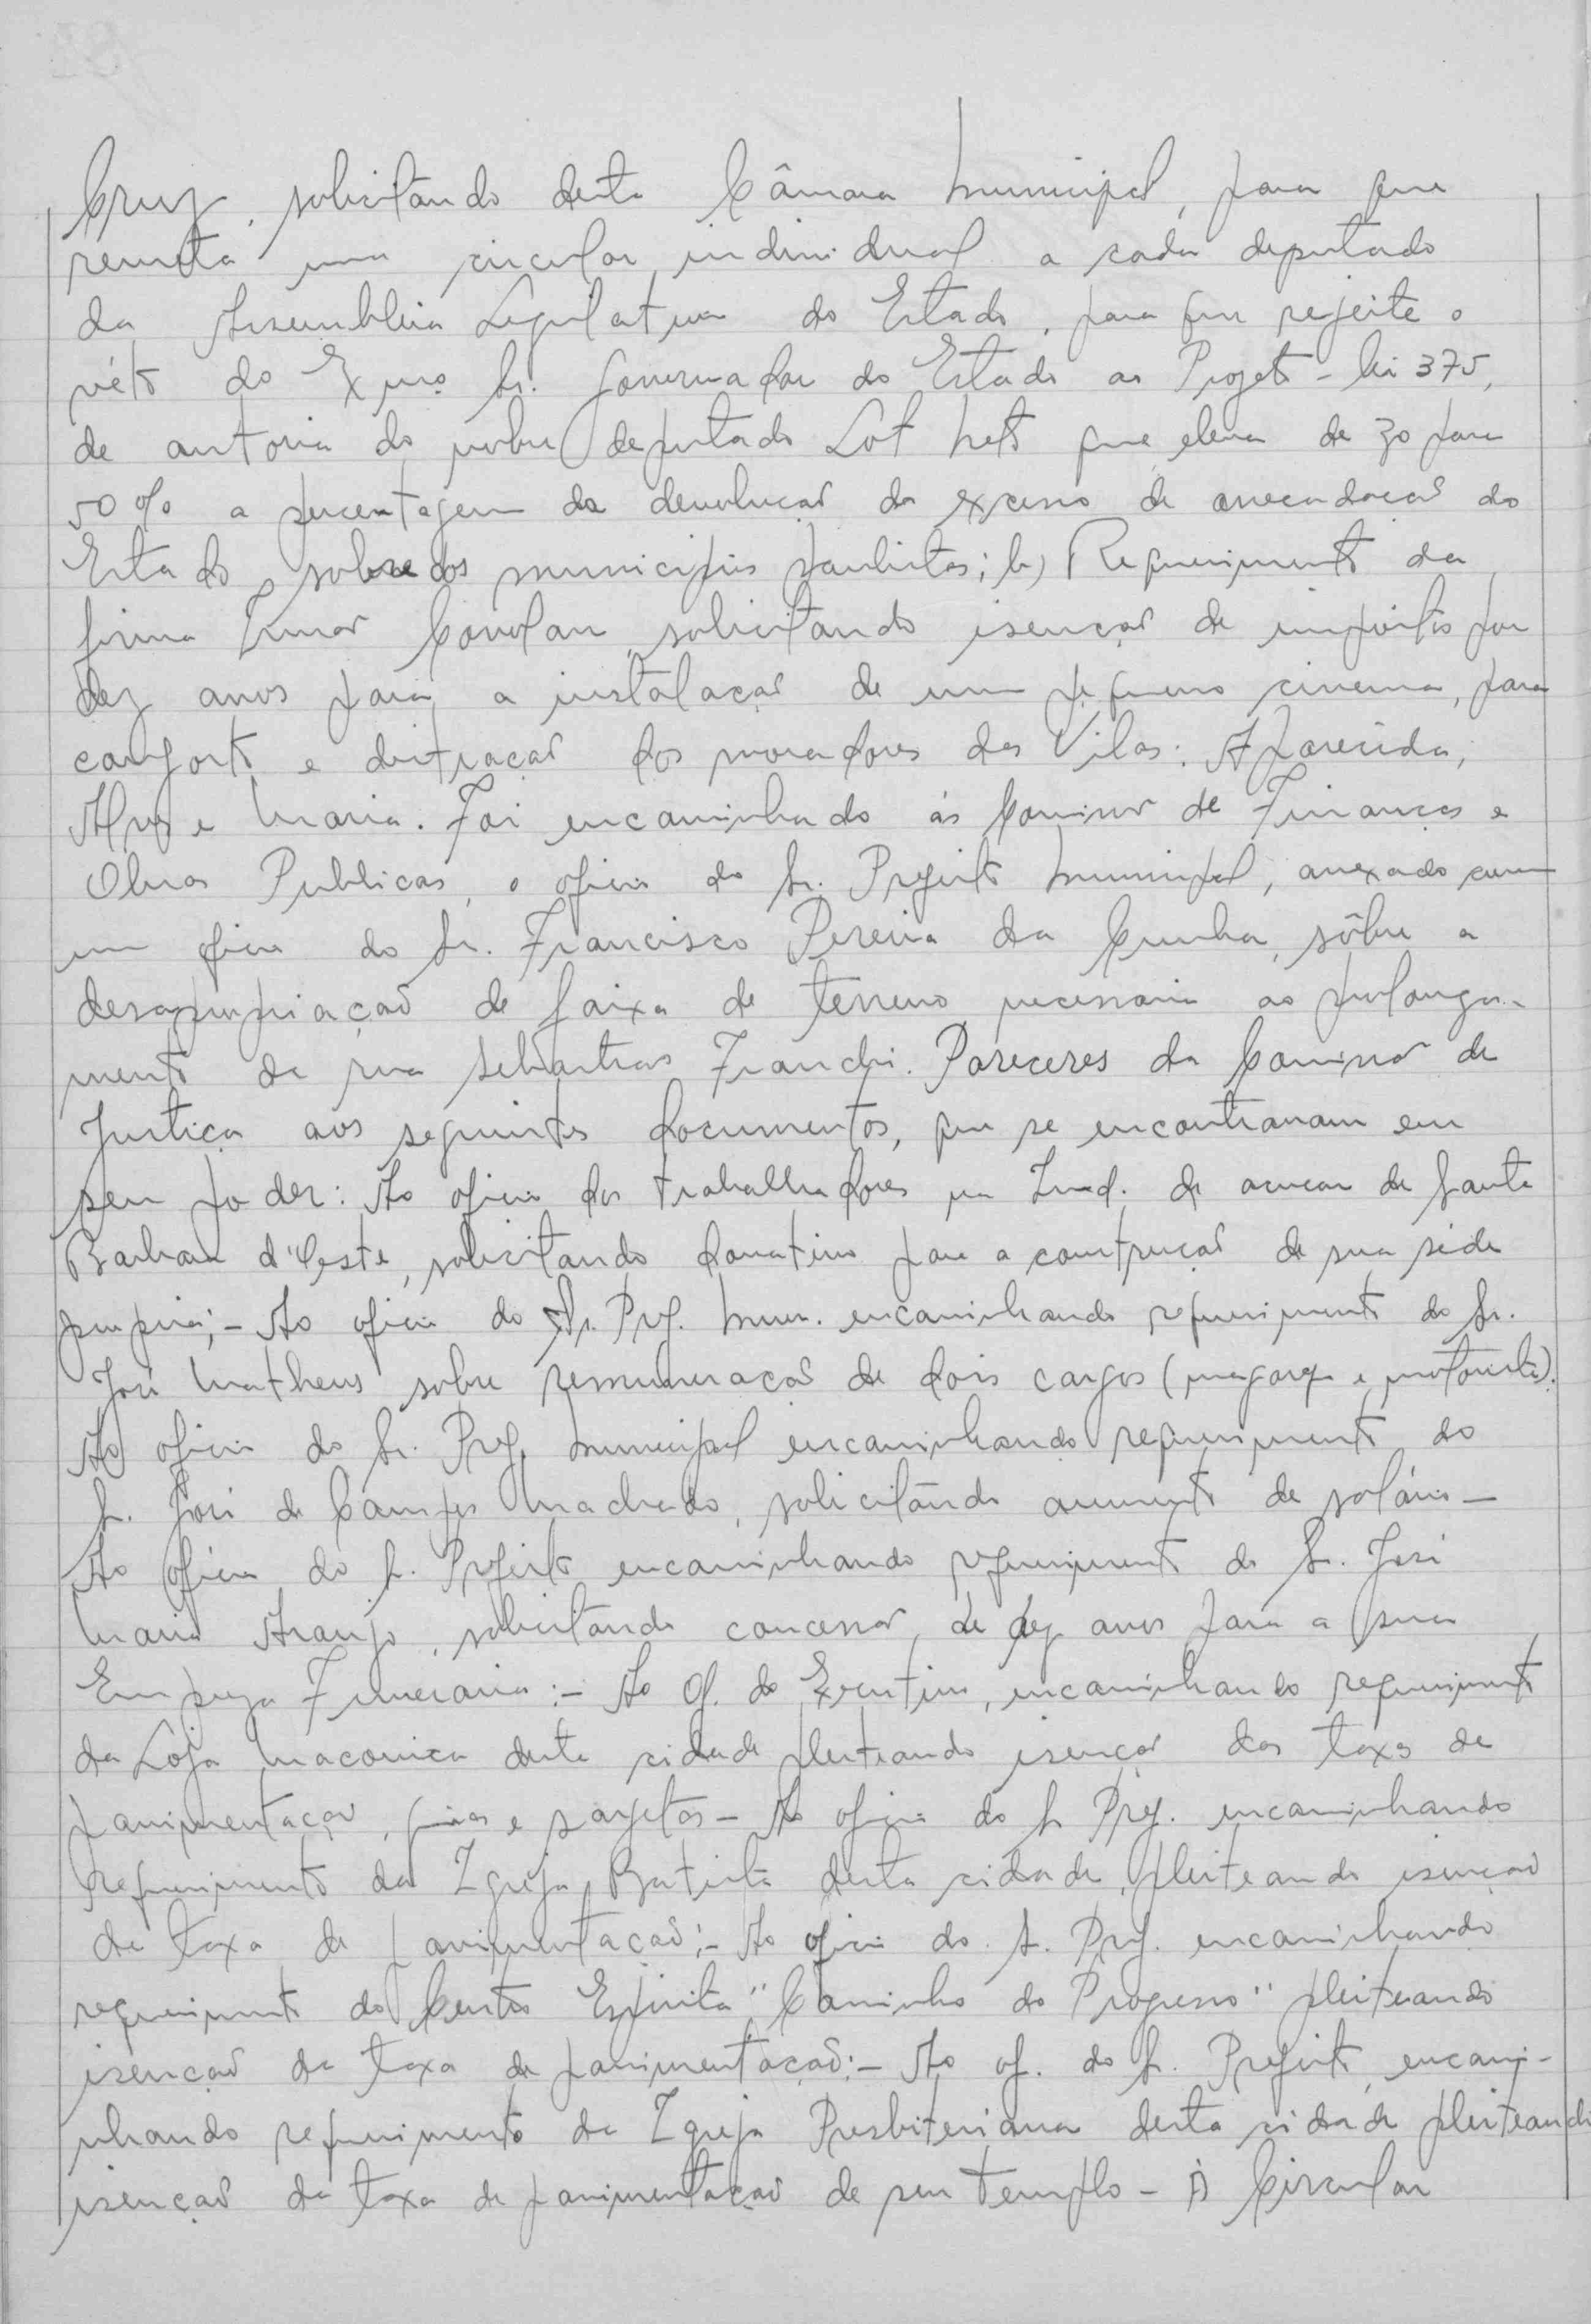 Cruz, solicitando desta Câmara Municipal, para que
remeta uma circular individual a cada deputado
da Assembleia Legislativa do Estado, para que rejeite o
véto do Exmo Sr. Governador do Estado ao Projeto-lei 375,
de autoria do nobre deputado Lot Neto que eleva de 30 para
50% a percentagem da devolução do excesso de arrecadação do
Estado, sobre os municipios paulistas; b) Requerimento da
firma Irmãos Covolan, solicitando isenção de impostos por
dez anos para a instalação de um pequeno cinema, para
conforto e distração dos moradores das Vilas: Aparecida,
Alves e Maria. Foi encaminhado ás Comissões de Finanças e
Obras Publicas, o oficio do Sr. Prefeito Municipal, anexado com
um oficio do Sr. Francisco Pereira da Cunha, sôbre a
desapropriação de faixa de terreno necessaria ao prolonga-
mento da rua Sebastião Franchi. Pareceres da Comissão de
Justiça aos seguintes documentos, que se encontravam em
seu poder: Ao oficio dos trabalhadores na Ind. de açucar de Santa
Barbara d'Oeste, solicitando donativo para a construção de sua séde
propria;- Ao oficio do Sr. Pref. Mun. encaminhando requerimento do Sr.
José Matheus sobre remuneração de dois cargos (magarefe e motorista).
Ao oficio do Sr. Pref. Municipal encaminhando requerimento do
Sr. José de Campos Machado, solicitando aumento de salário -
Ao oficio do Sr. Prefeito encaminhando requerimento do Sr. José
Maria Araujo, solicitando concessão, de dez anos para a sua
Empreza Funeraria:- Ao Of. do Executivo, encaminhando requerimento
da Loja Maconica desta cidade pleiteando isenção das taxas de
pavimentação, guias e sargetas - Ao oficio do Sr Pref. encaminhando
requerimento da Igreja Batista desta cidade, pleiteando isenção
da taxa de pavimentação;- Ao oficio do Sr. Pref. encaminhando
requerimento do Centro Espirita "Caminho do Progresso" pleiteando
isenção da taxa de pavimentação:- Ao of. do Sr. Prefeito, encami-
nhando requerimento da Igreja Presbiteriana desta cidade pleiteando
isenção da taxa de pavimentação de seu templo - À Circular